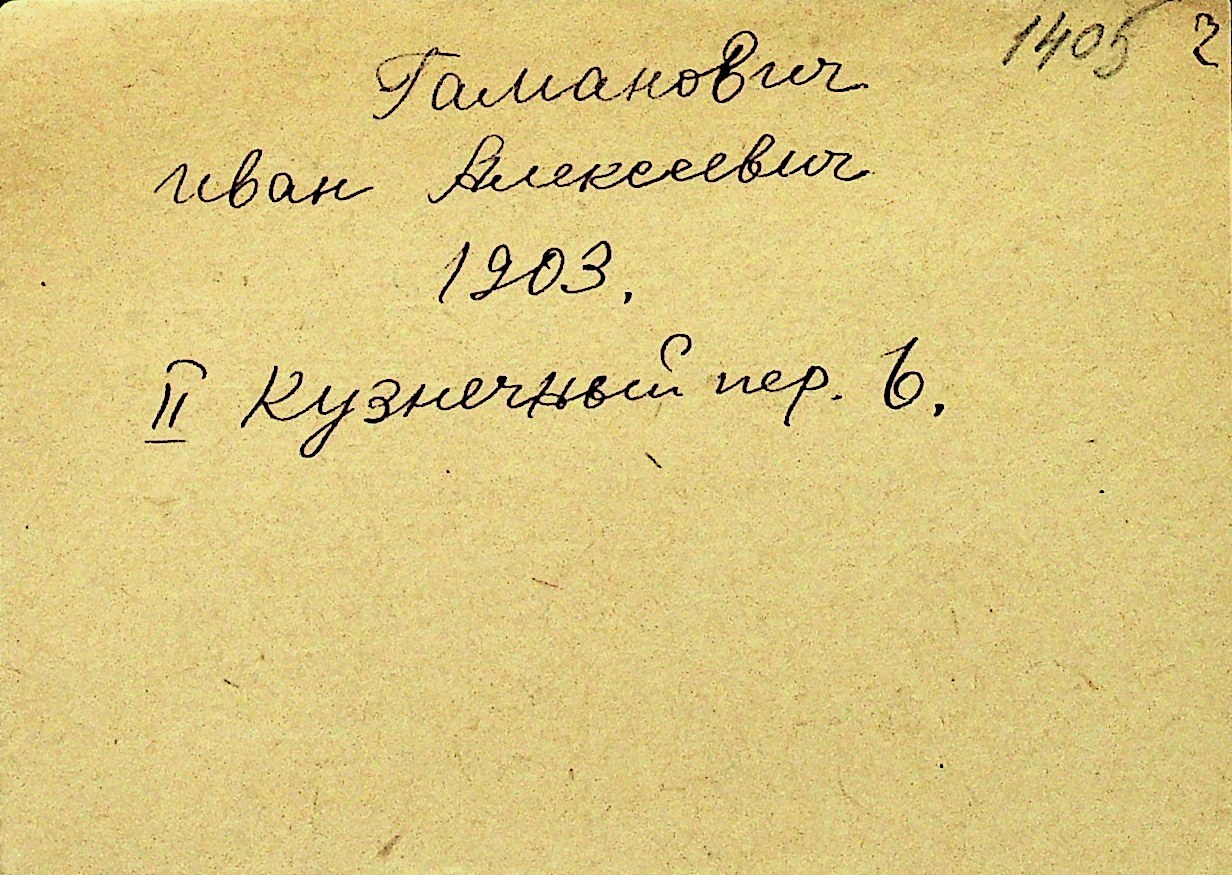 1405 2
Гаманович
Иван Алексеевич
1903.
II Кузнечный пер. 6.